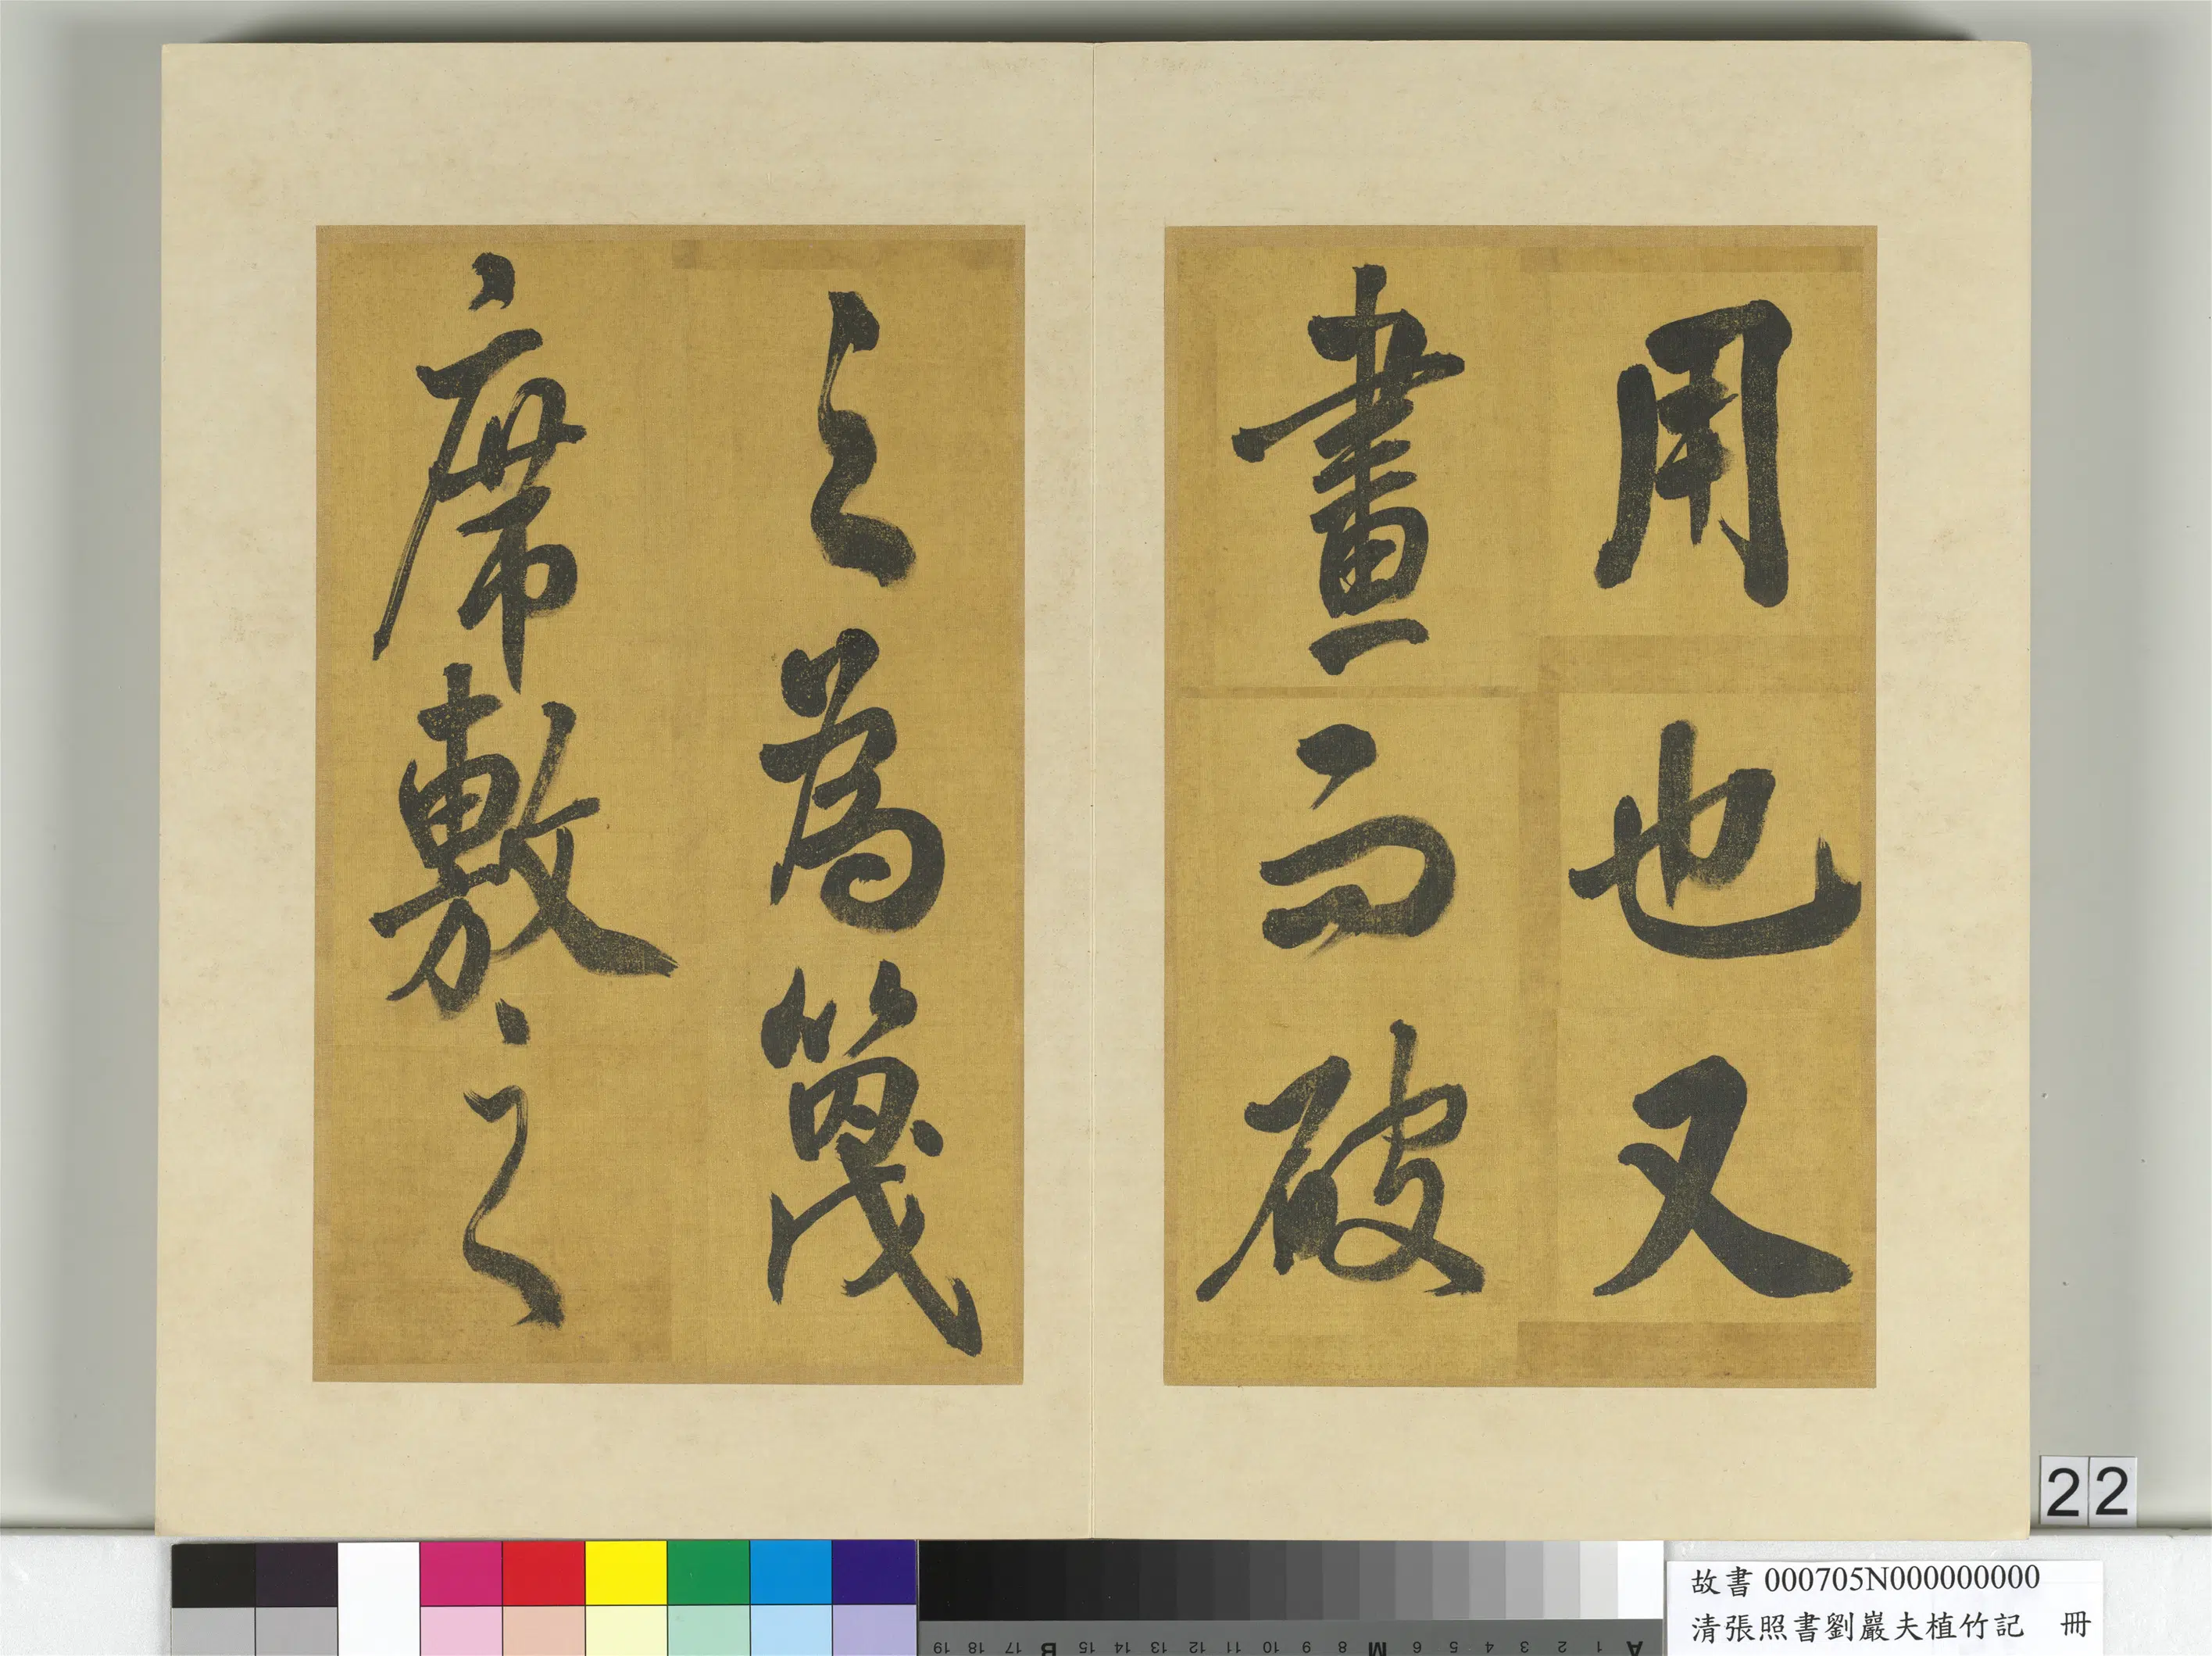 用也又
畫而破
之為篾
席敷之
22
故書 000705N000000000
清張照書劉巖夫植竹記 冊
A 1 2 3 4 5 6 M 8 9 10 11 12 13 14 15 B 17 18 19